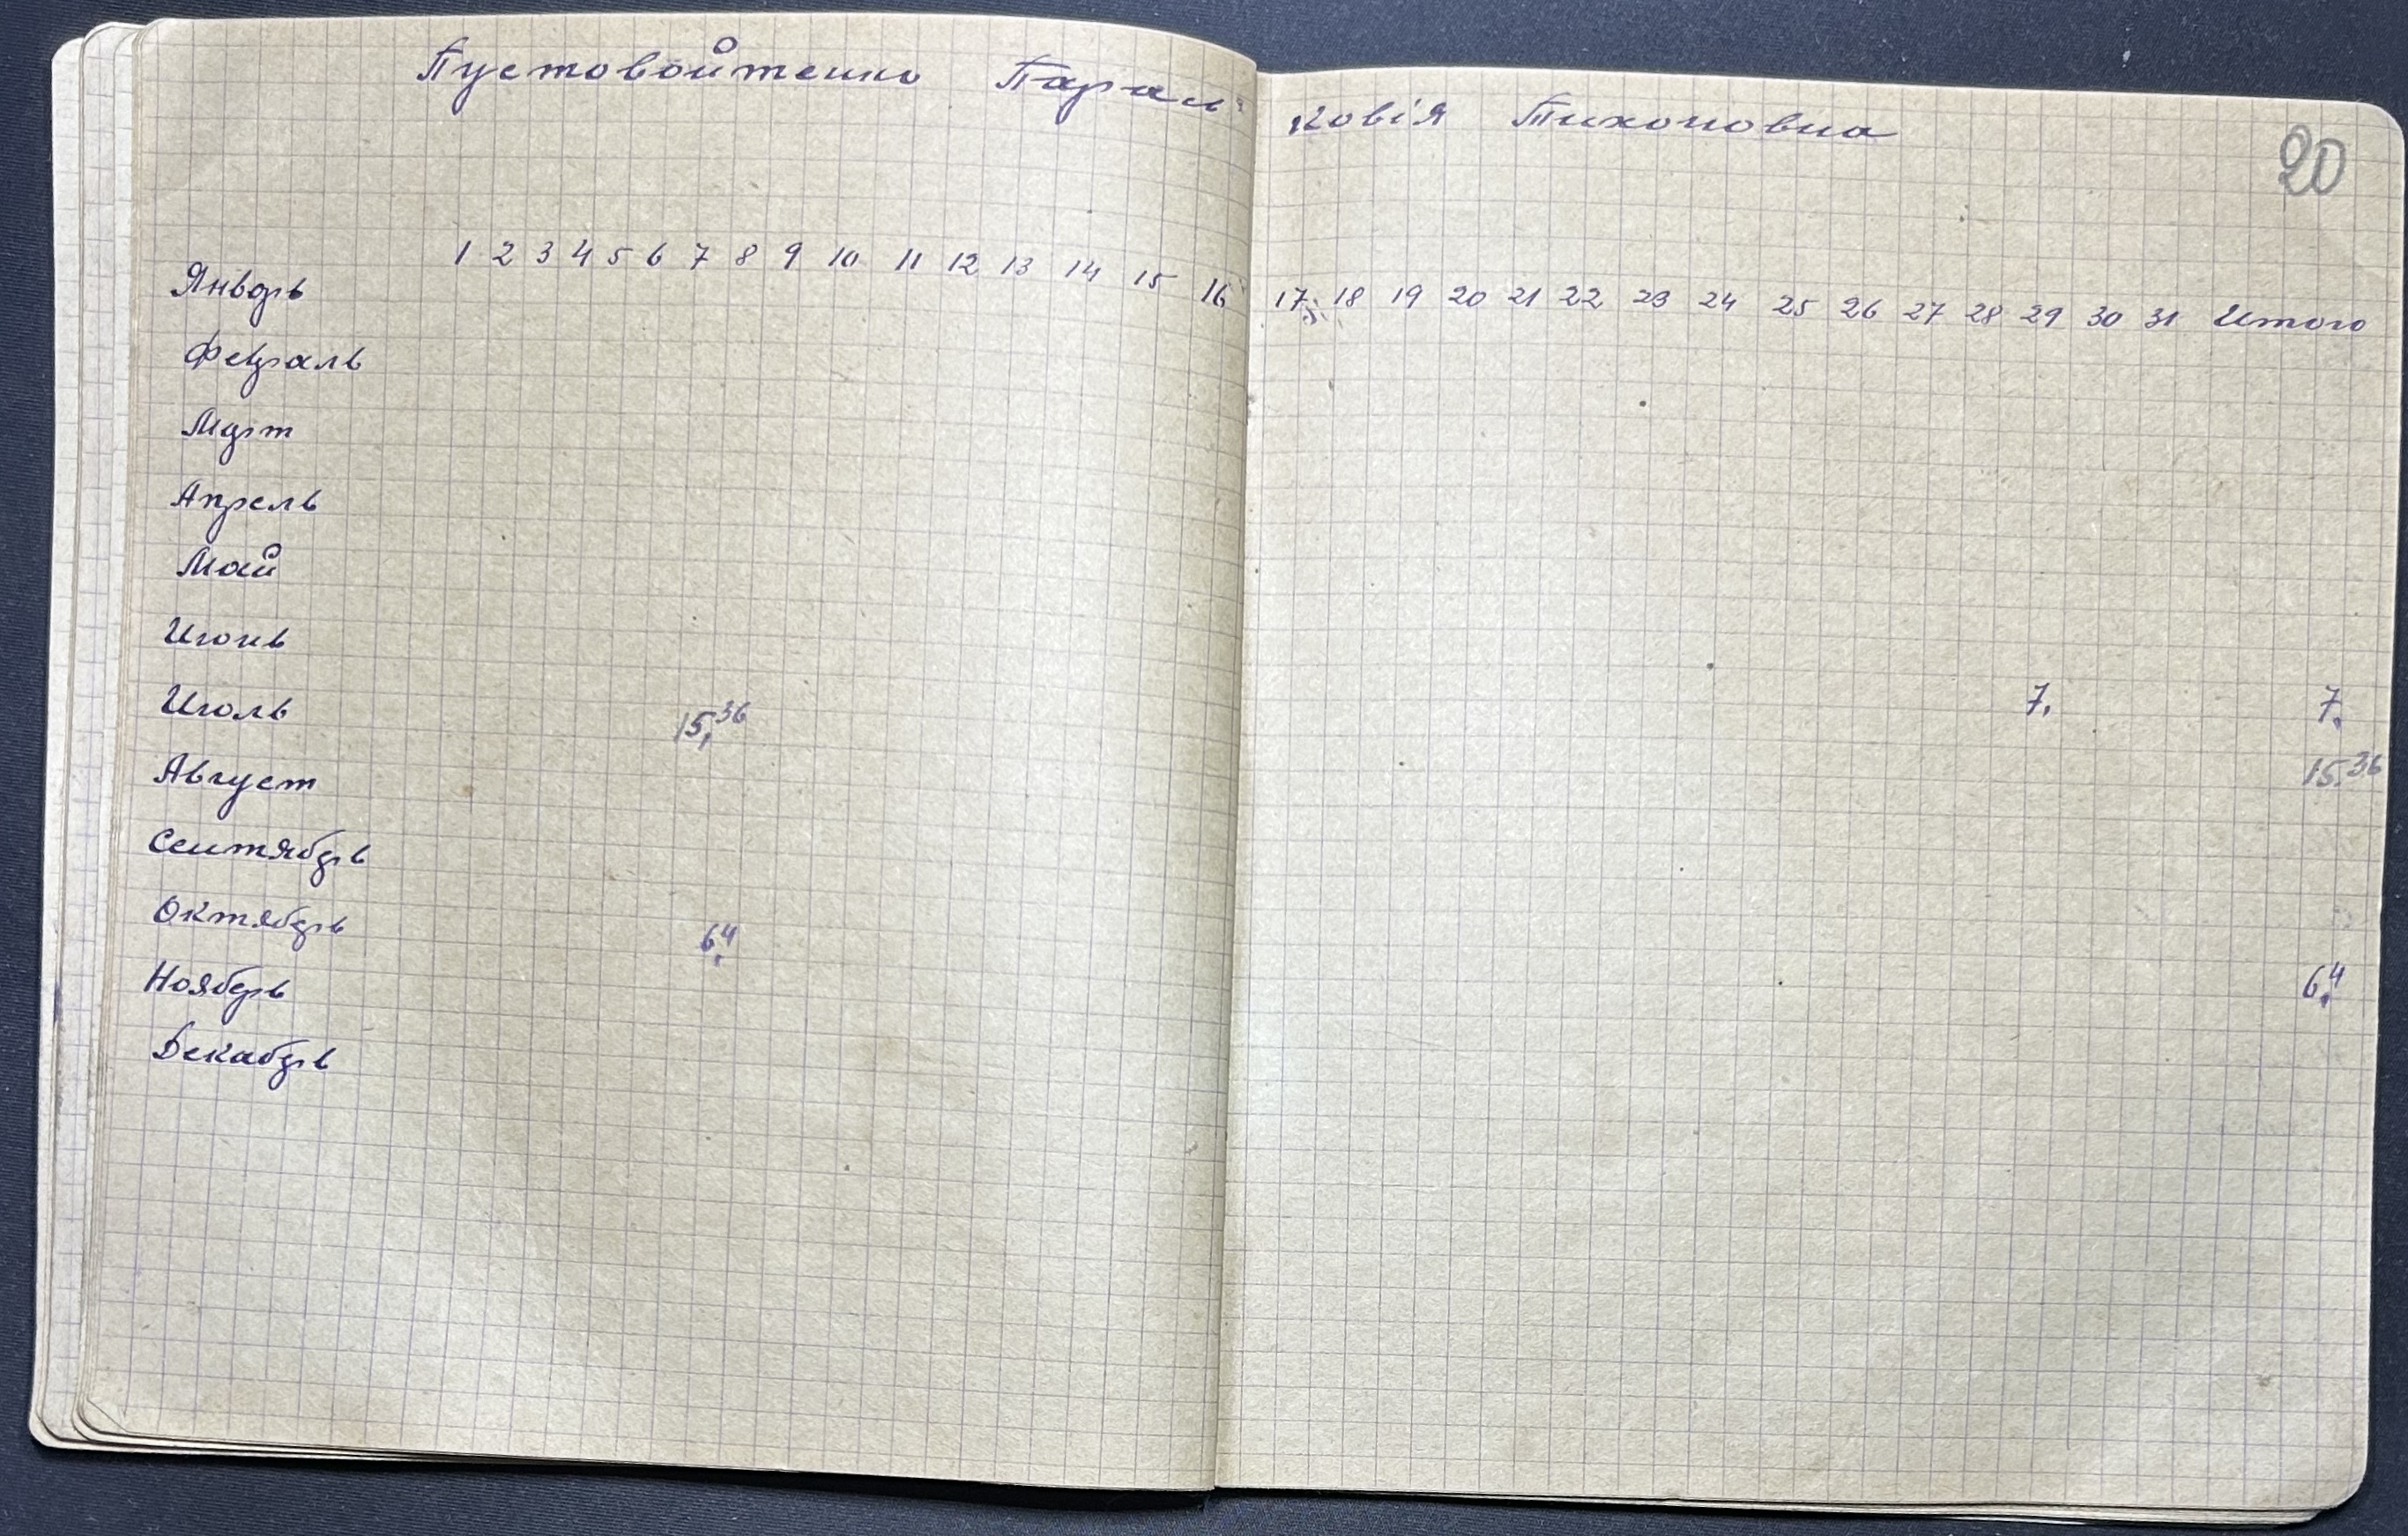 Пустовойтенко Парасковія Тихоновна
20
1 2 3 4 5 6 7 8 9 10 11 12 13 14 15 16 17 18 19 20 21 22 23 24 25 26 27 28 29 30 31 Итого
Январь
Февраль
Март
Апрель
Май
Июнь
Июль 7. 7.
15,36
Август 15.36
Сентябрь
Октябрь
6.4
Ноябрь 6.4
Декабрь